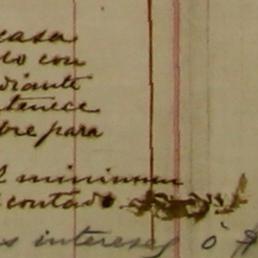 casa
do con
diante
tenece
bre para
l minimum
contado
s intereses ó $